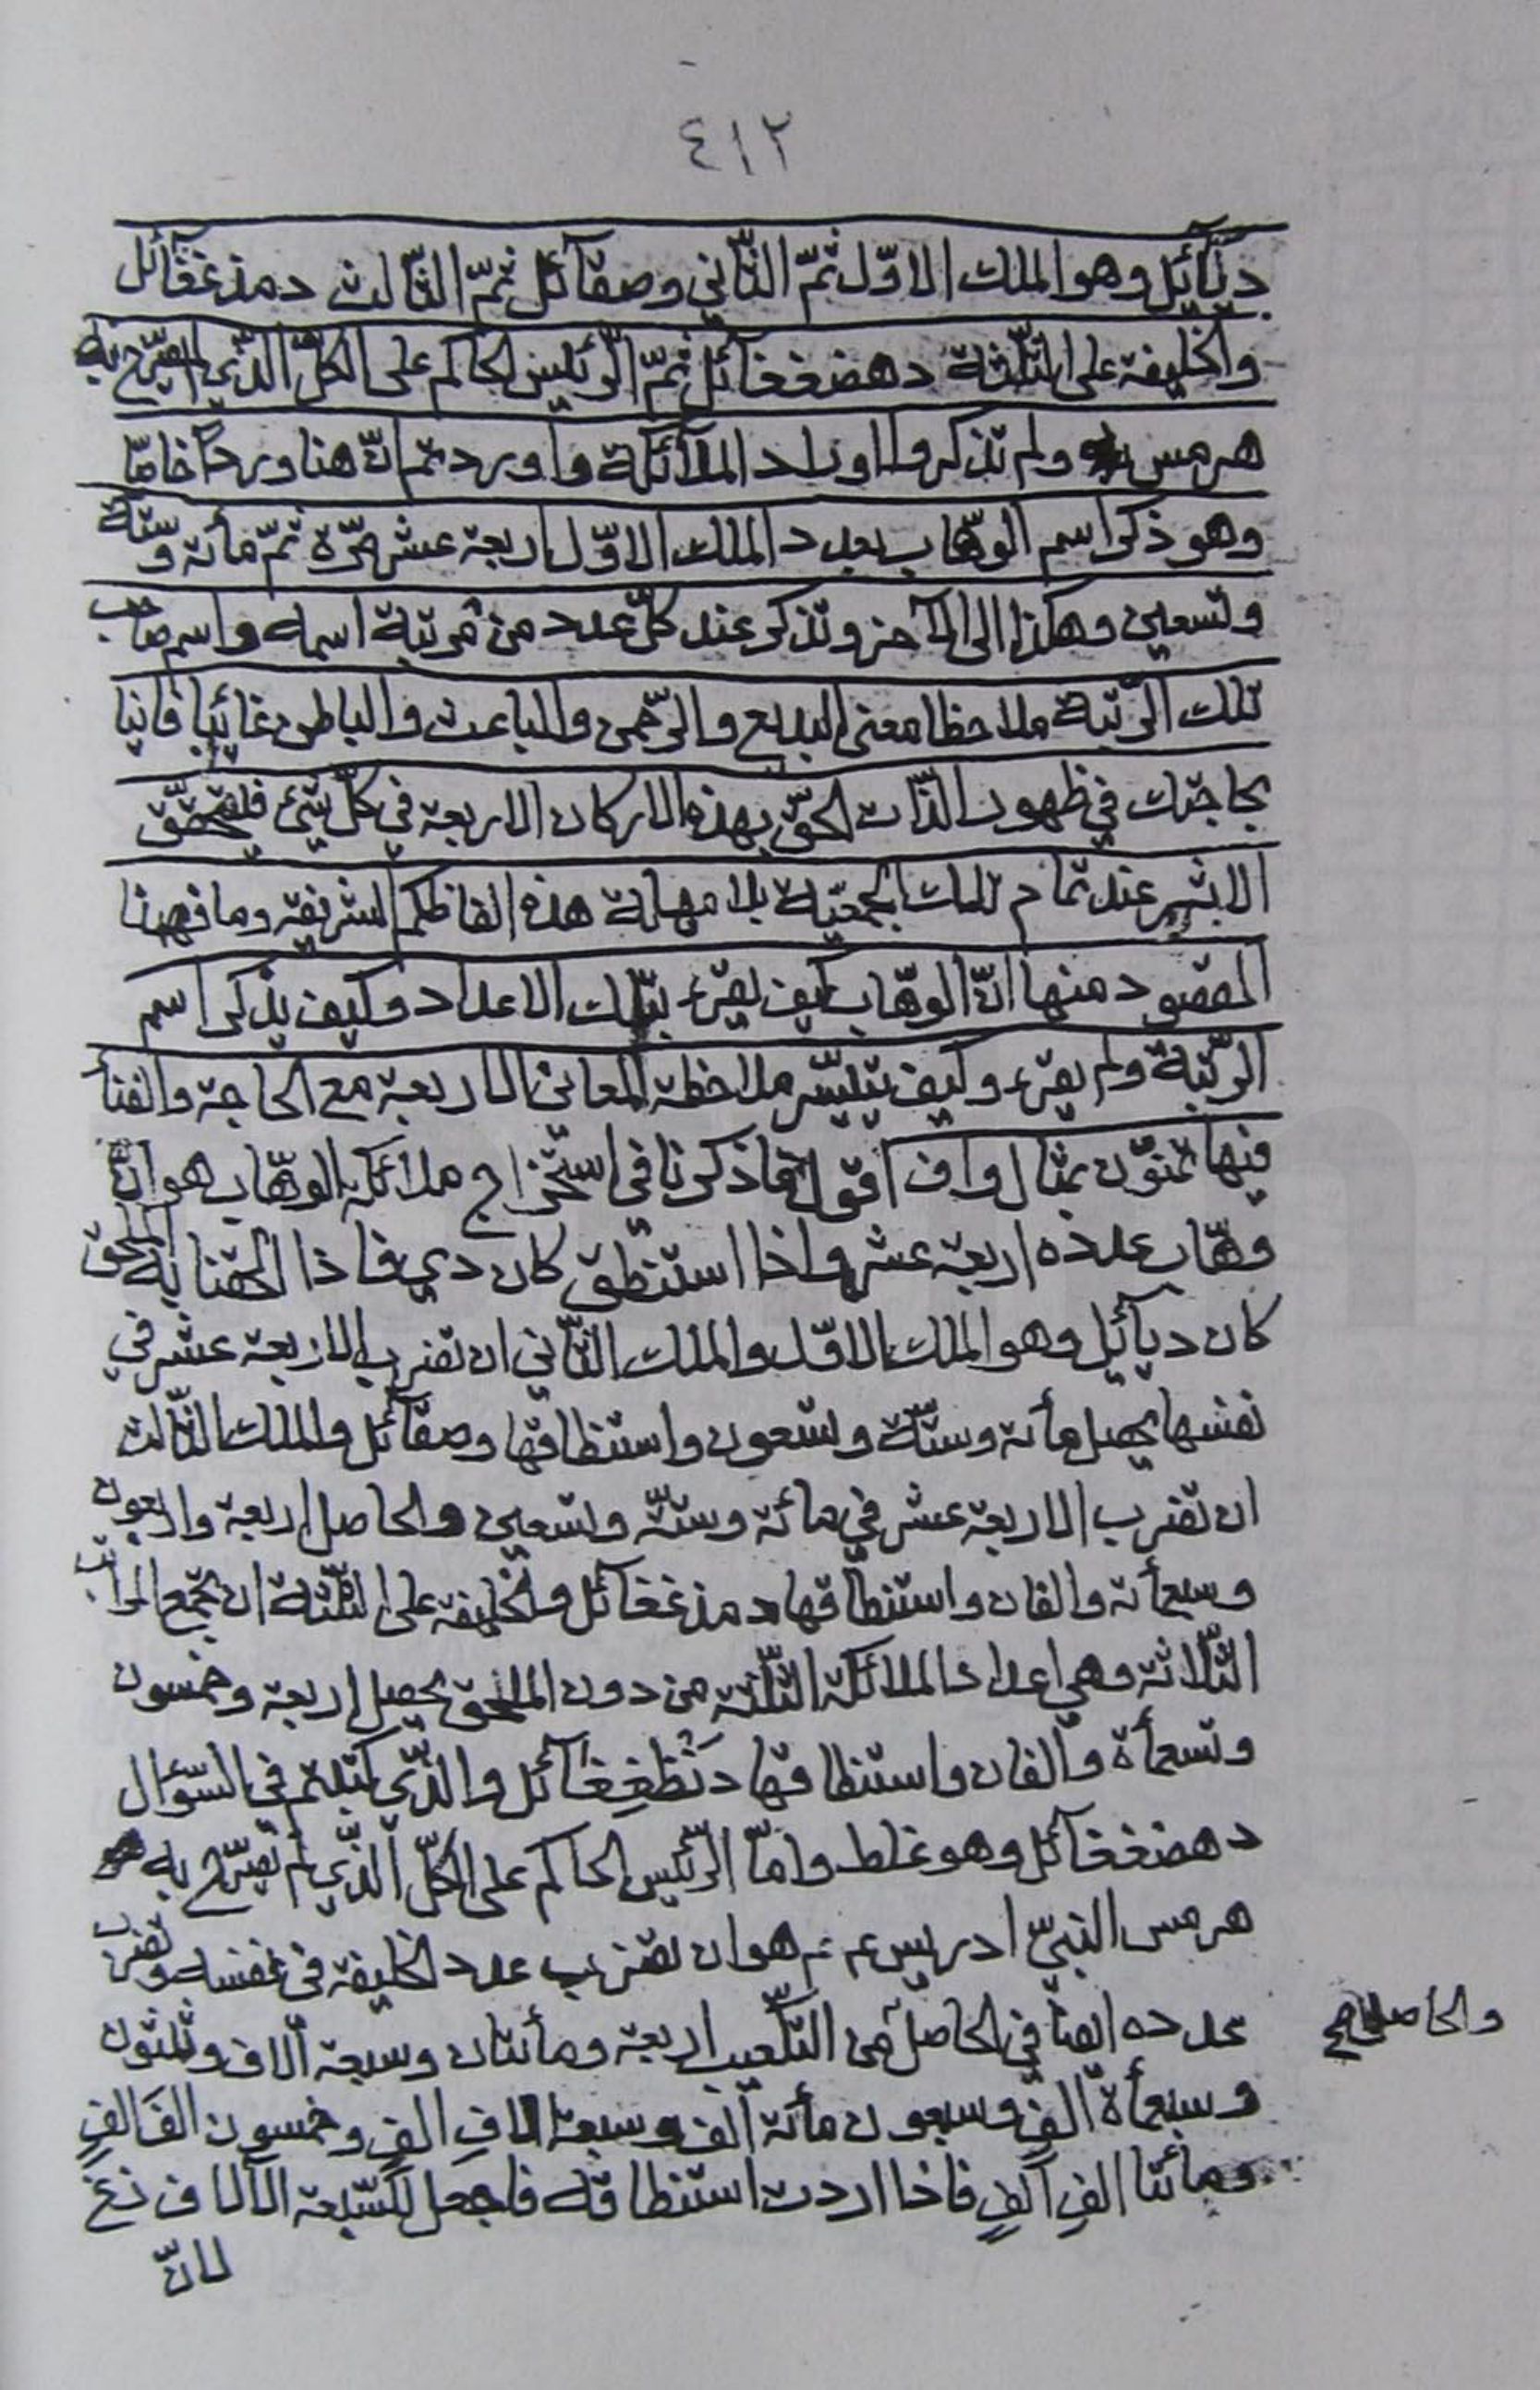 ٤١٢
ديائيل وهو الملك الاوّل ثمّ الثّاني وصقآئل ثمّ الثّالث دمذغغآئل
والخليفة على الثّلثة دهضغغآئل ثمّ الرّئيس الحاكم على الكلّ الّذي لم يصرّح به
هرمس ولم تذكروا اوراد الملآئكة واوردتم انّ هنا وردًا خاصّا
وهو ذكر اسم الوهّاب بعدد الملك الاوّل اربعة عشر مرّة ثمّ مأئة وستّة
وتسعين وهكذا الى الآخر وتذكر عند كلّ عدد من مرتبة اسمه واسم صاحب
تلك الرّتبة ملاحظا معنى البديع والرّحمن والباعث والباطن غائبا فانيا
بحاجتك في ظهور الذّات الحقّ بهذه الاركان الاربعة في كلّ شيئ فليتحقّق
الاثر عند تمام تلك الجمعيّة بلا مهلة هذه الفاظكم الشريفة وما فهمنا
المقصود منها انّ الوهّاب كيف يقرء بتلك الاعداد وكيف يذكر اسم
الرّتبة ولم يقرء وكيف يتيسّر ملاحظة المعاني الاربعة مع الحاجة والفنآ
فيها تمنّون بمثال واف اقول ما ذكرنا في استخراج ملائكة الوهّاب هو انّ
وهّاب عدده اربعة عشر واذا استنطق كان دي فاذا الحقنا به الملحق
كان ديآئيل وهو الملك الاوّل والملك الثّاني ان تضرب الاربعة عشر في
نفسها يحصل مأئة وستّة وتسعون واستنطاقها وصقآئل والملك الثّالث
ان تضرب الاربعة عشر في مائة وستّة وتسعين والحاصل اربعة واربعون
وسبعمأئة والفان واستنطاقها دمذغغآئل والخليفة على الثّلثة ان تجمع المراتب
الثّلاثة وهي اعداد الملائكة الثّلثة من دون الملحق يحصل اربعة وخمسون
وتسعمأة والفان واستنطاقها دنظغغآئل والّذي كتبتم في السّؤال
دهضغغآئل وهو غلط وامّا الرّئيس الحاكم على الكلّ الّذي لم يصرّح به
هرمس النبيّ ادريس ع م هو ان تضرب عدد الخليفة في نفسه وتضرب
عدده ايضا في الحاصل من التّكعيب اربعة ومأتان وسبعة آلاف وثلثون
والحاصل صح
وسبعمأة الفٍ وسبعون مأئة الف وسبعة الافِ الفٍ وخمسون الفَ الفٍ
ومأتا الفِ الفٍ فاذا اردت استنطاقه فاجعل لكسّبعة الآلاف زغ
لانّ